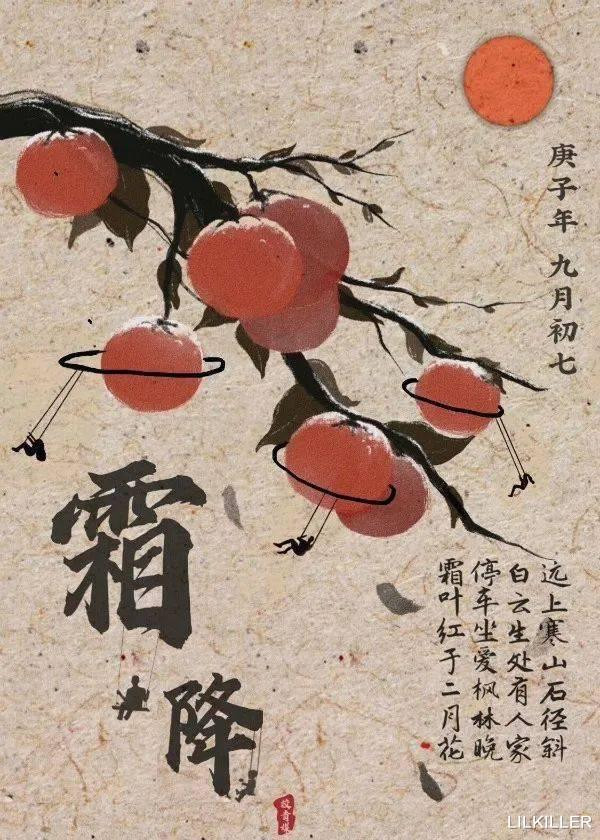 庚子年 九月初七
霜降
远上寒山石径斜
白云生处有人家
停车坐爱枫林晚
霜叶红于二月花
LILKILLER